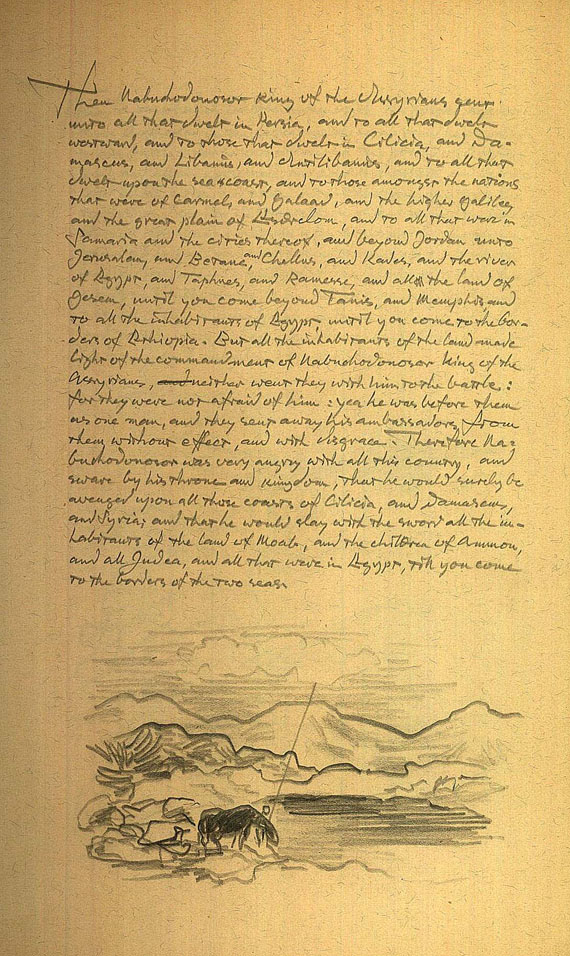 Then Nabuchodonosor king of the Assyrians sent
unto all that dwelt in Persia, and to all that dwelt
westward, and to those that dwelt in Cilicia, and Da-
mascus, and Libanus, and Antilibanus, and to all that
dwelt upon the seacoast, and to those amongst the nations
that were of Carmel, and Galaad, and the higher Galilee,
and the great plain of Esdrelom, and to all that were in
Samaria and the cities thereof, and beyond Jordan unto
Jerusalem, and Betane, and Chellus, and Kades, and the river
of Egypt, and Taphnes, and Ramesse, and all the land of
Gesem, until you come beyond Tanis, and Memphis and
to all the inhabitants of Egypt, until you come to the bor-
ders of Ethiopia. But all the inhabitants of the land made
light of the commandment of Nabuchodonosor king of the
Assyrians, and neither went they with him to the battle:
for they were not afraid of him: yea he was before them
as one man, and they sent away his ambassadors from
them without effect, and with disgrace. Therefore Na-
buchodonosor was very angry with all this country, and
sware by his throne and kingdom, that he would surely be
avenged upon all those coasts of Cilicia, and Damascus,
and Syria, and that he would slay with the sword all the in-
habitants of the land of Moab, and the children of Ammon,
and all Judea, and all that were in Egypt, till you come
to the borders of the two seas.